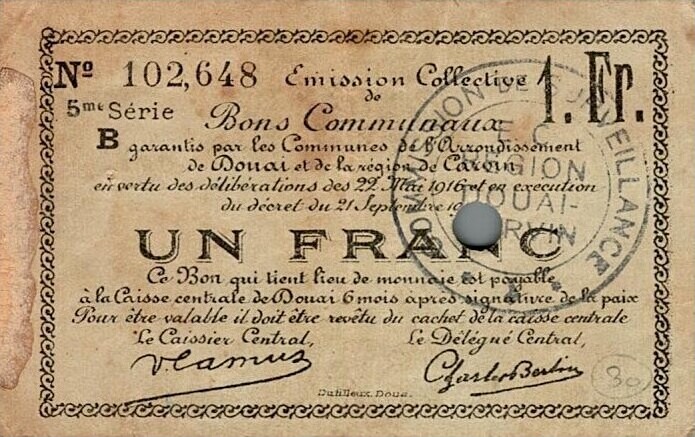 Nº 102,648 Emission Collective 1. Fr.
5me Série de
B Bons Communaux
garantis par les Communes de l'Arrondissement
de Douai et de la région de Carvin
en vertu des délibérations des 22 Mai 1916 et en execution
du décret du 21 Septembre
UN FRANC
Ce Bon qui tient lieu de monnaie est payable
à la Caisse centrale de Douai 6 mois après signature de la paix
Pour être valable il doit être revêtu du cachet de la caisse centrale
Le Caissier Central, Le Délégué Central,
V Camus Charles Bertin
Dutilleux. Douai.
30
COMMISSION DE SURVEILLANCE
E C
REGION
DOUAI-
CARVIN